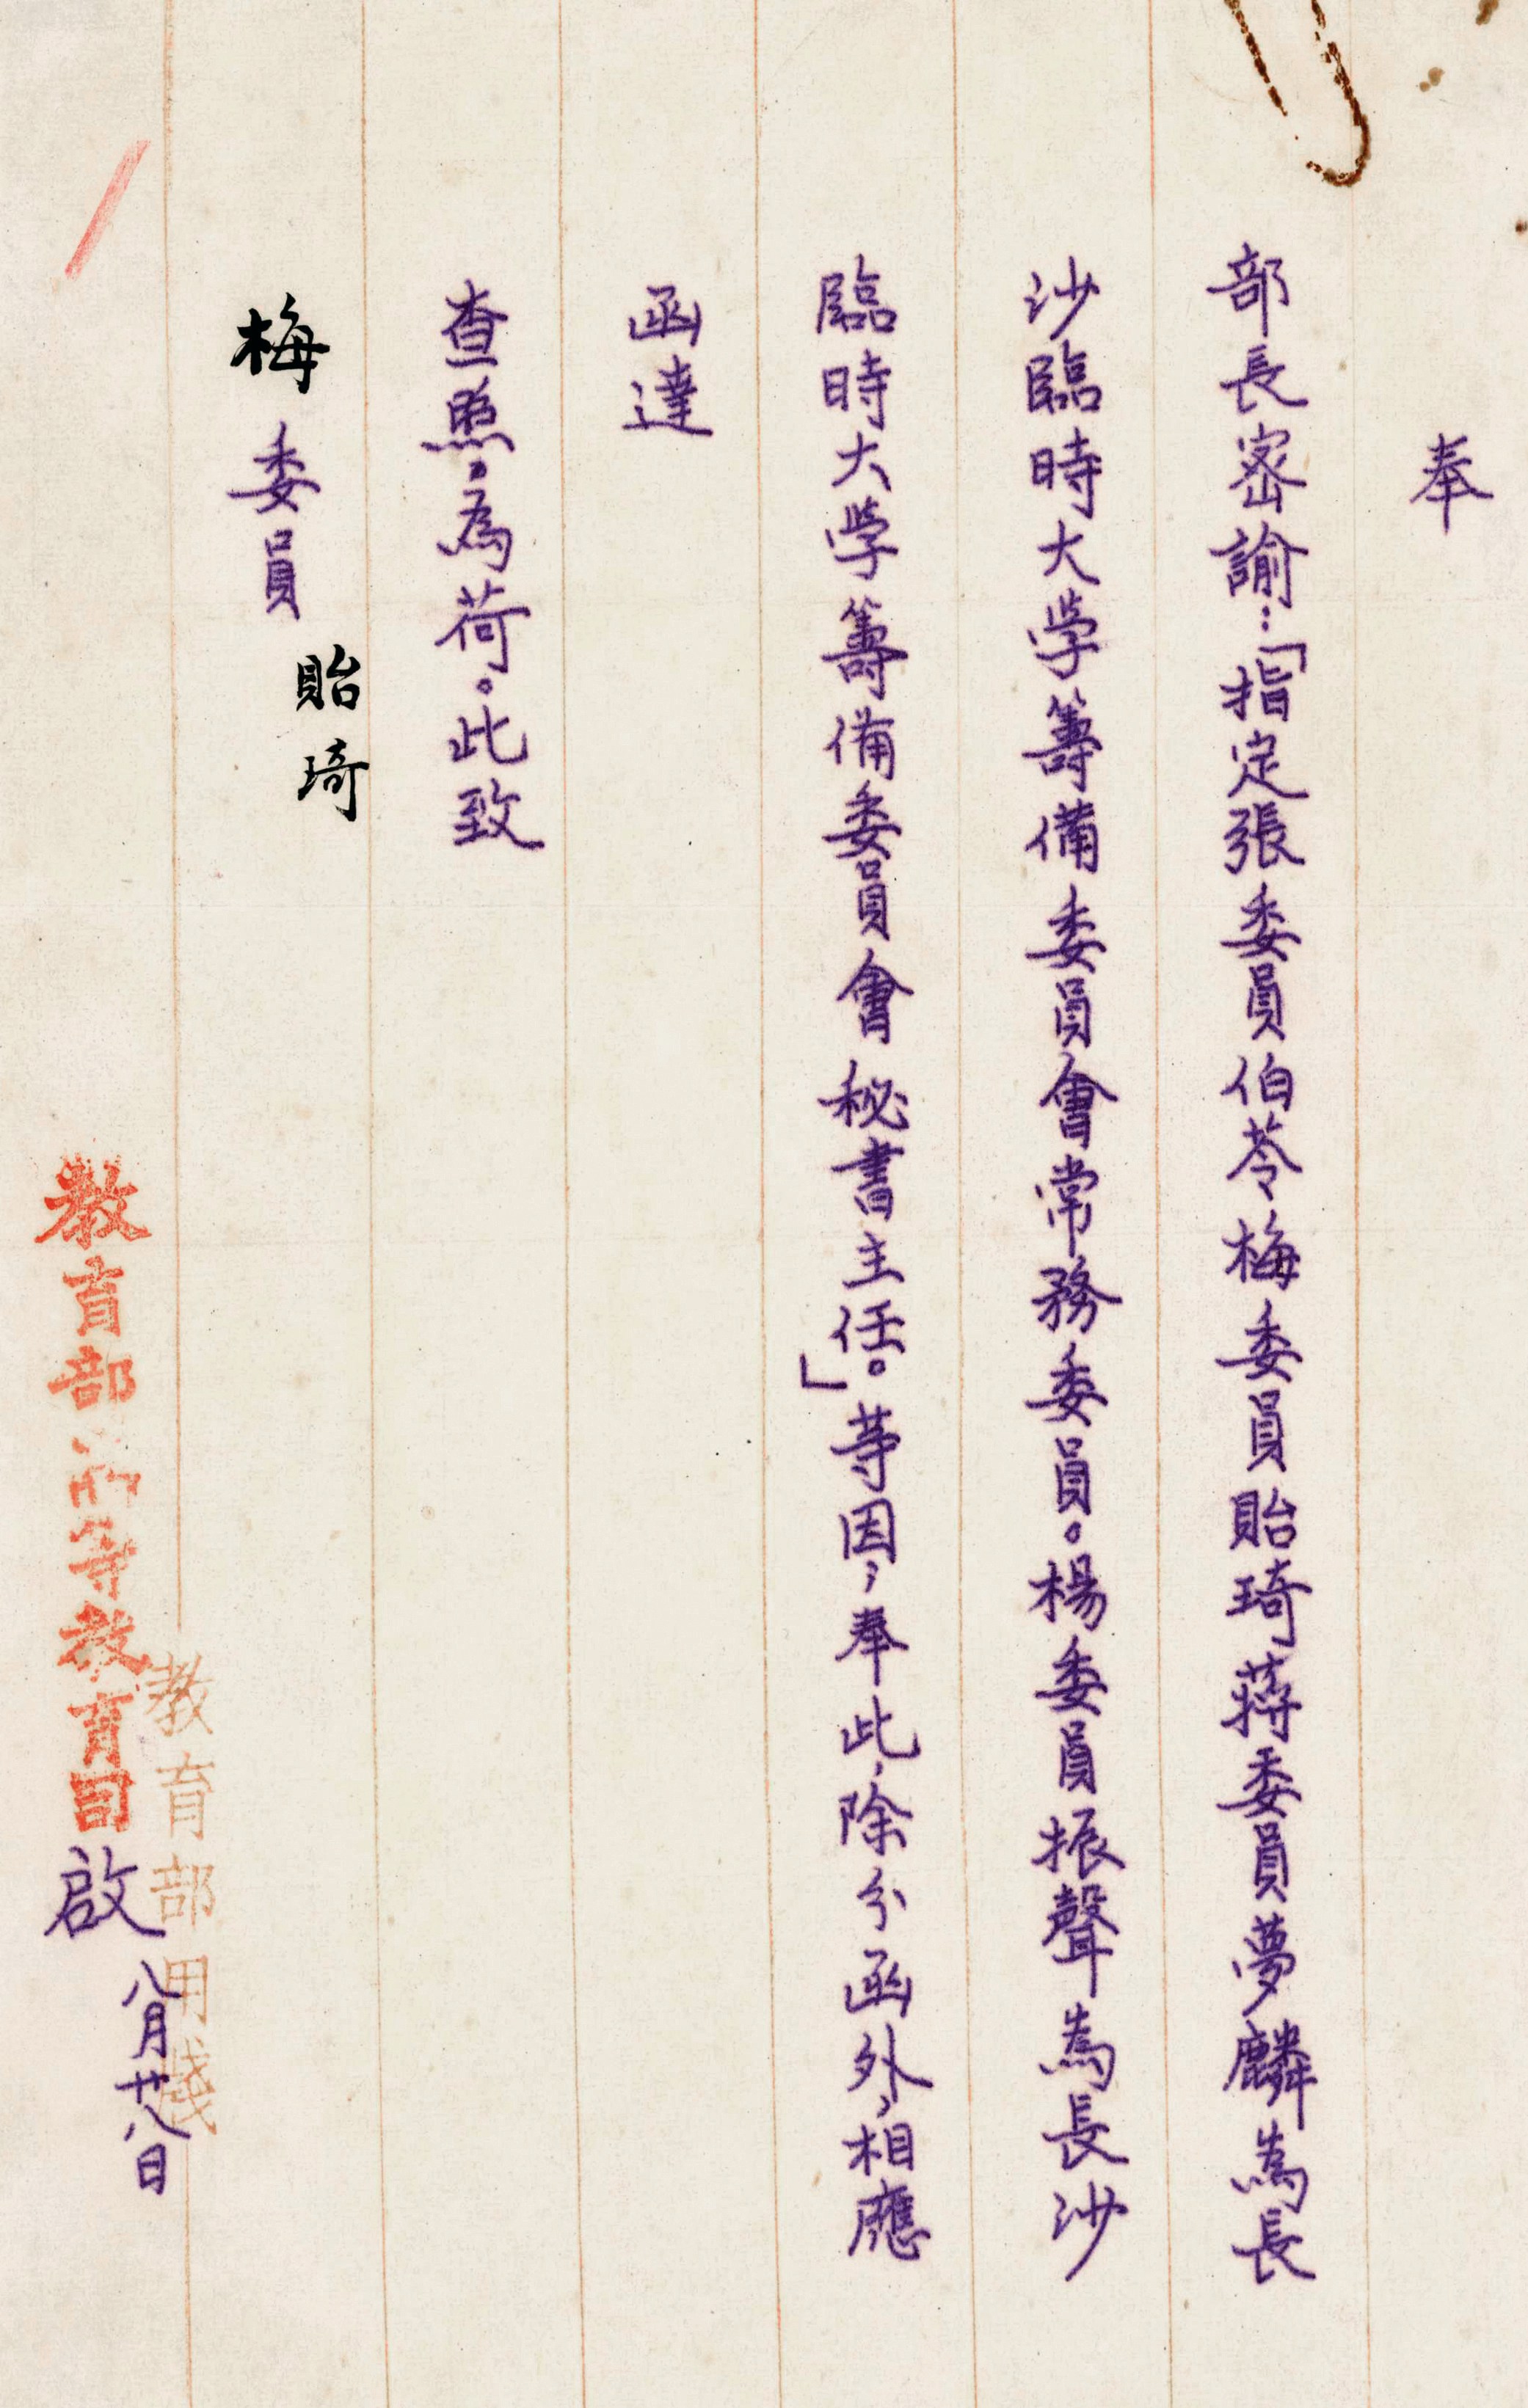 奉
部長密諭：「指定張委員伯苓梅委員貽琦蔣委員夢麟為長
沙臨時大学籌備委員會常務委員。楊委員振聲為長沙
臨時大学籌備委員會秘書主任。」等因；奉此，除分函外，相應
函達
查照。為荷。此致
梅委員貽琦
教育部用箋
教育部高等教育司啟
八月廿八日